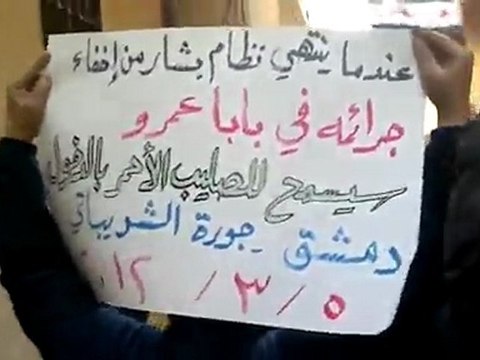 عندما ينتهي نظام بشار من إخفاء
جرائمه في بابا عمرو
سيسمح للصليب الأحمر بالدخول
دمشق جورة الشريباتي
٥ / ٣ / ٢٠١٢